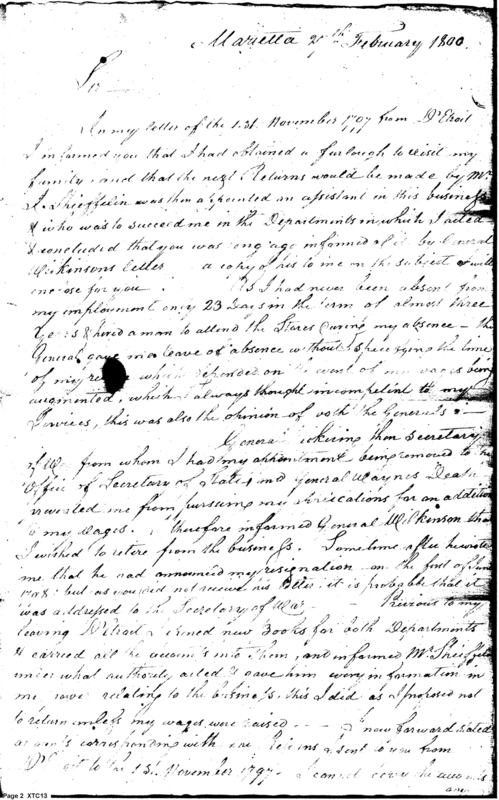 Marietta 2th February 1800.
Sir
In my letter of the 13t. November 1797 from D'Etroit
I informed you that I had obtained a furlough to visit my
family and that the next Returns would be made by Mr
J. Shieffelin was then appointed an assistant in this business
& who was to succeed me in the Departments in which I acted
& concluded that you was long ago informed of it by General
Wilkinsons letter a copy of his to me on the subject I will
inclose for you. As I had never been absent from
my employment only 23 Days in the term of almost three
Years & hired a man to attend the Stores during my absence – the
General gave me a leave of absence without specifying the time
of my which depended on the event of my wages being
augmented, which I always thought incompetent to my
Services, this was also the opinion of both the Generals –
General Pickering then Secretary
of War from whom I had my appointment being removed to the
Office of Secretary of State and General Waynes Death
prevented me from pursuing my applications for an addition
to my wages. I therefore informed General Wilkinson that
I wished to retire from the business. Sometime after he wrote
me that he had announced my resignation on the first of June
1798: but as you did not receive his letter it is probable that it
was addressed to the Secretary of War Previous to my
leaving D'Etroit I opened new Books for both Departments
& carried all the accounts into them and informed Mr. Shieffelin
under what authority acted & gave him every information in
my power relating to the business. This I did as I proposed not
to return unless my wages were raised – – I now forward stated
accounts corresponding with the Returns I sent to you from
D'Etroit to the 13t. November 1797. I cannot close the accounts